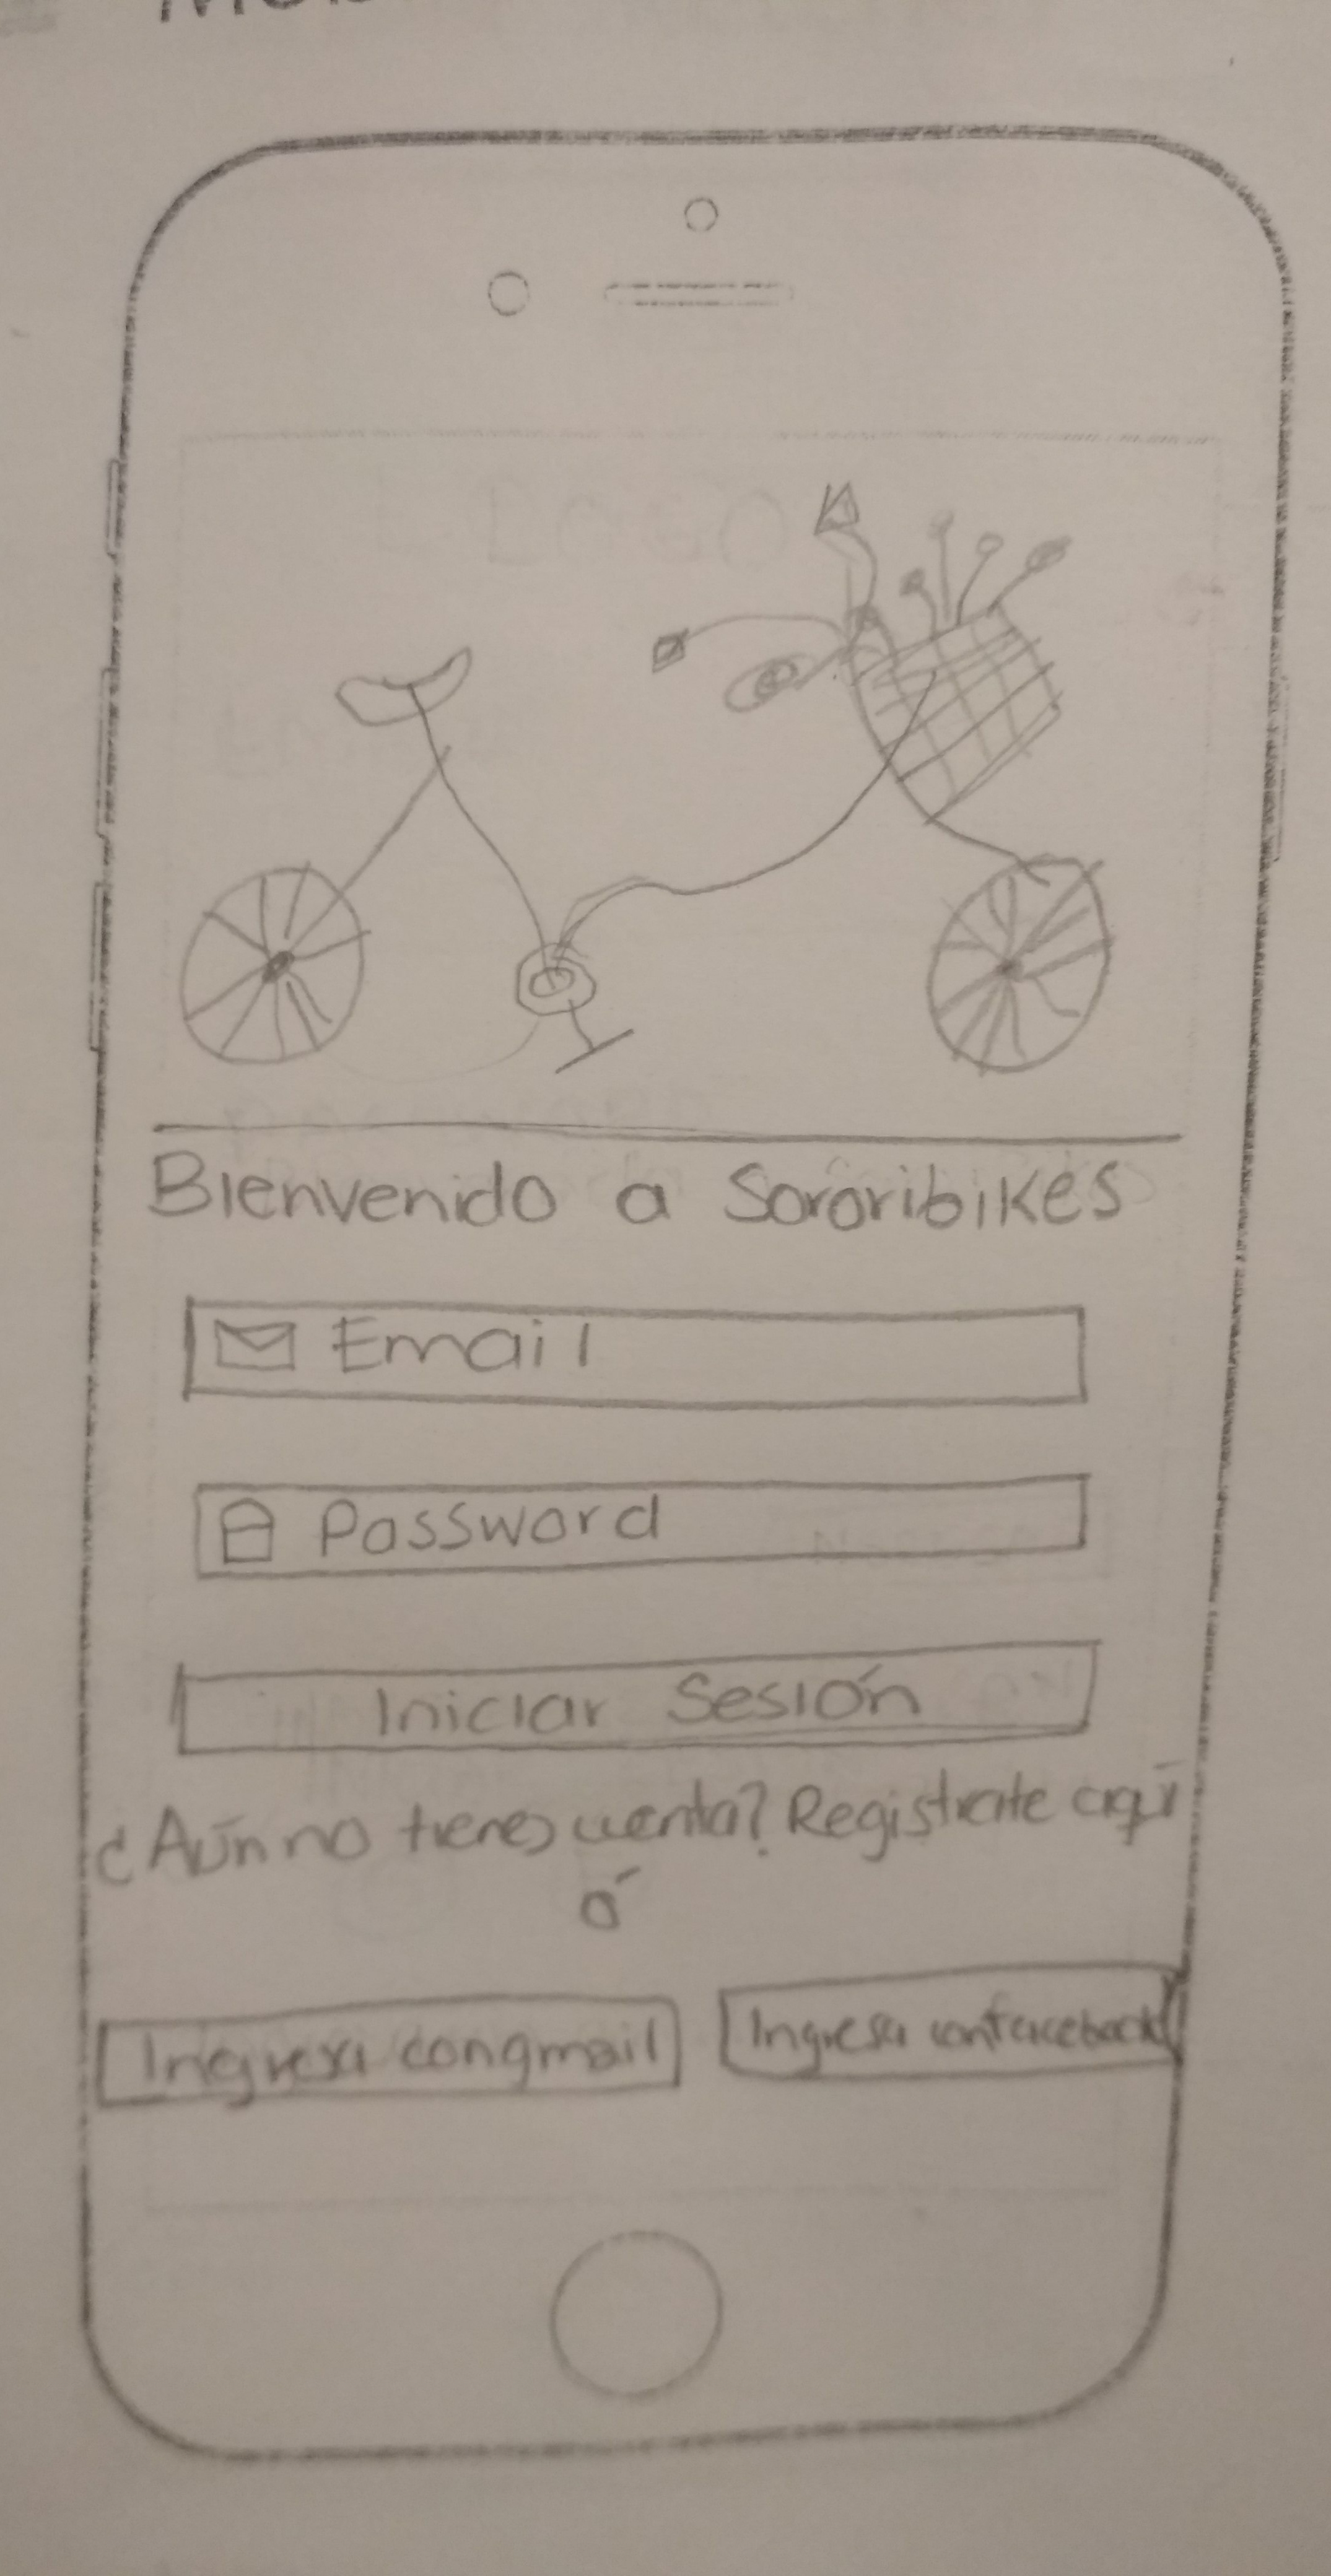 Bienvenido a Sororibikes
Email
Password
Iniciar Sesión
¿Aún no tienes cuenta? Registrate aquí
ó
Ingresa con gmail
Ingresa con facebook